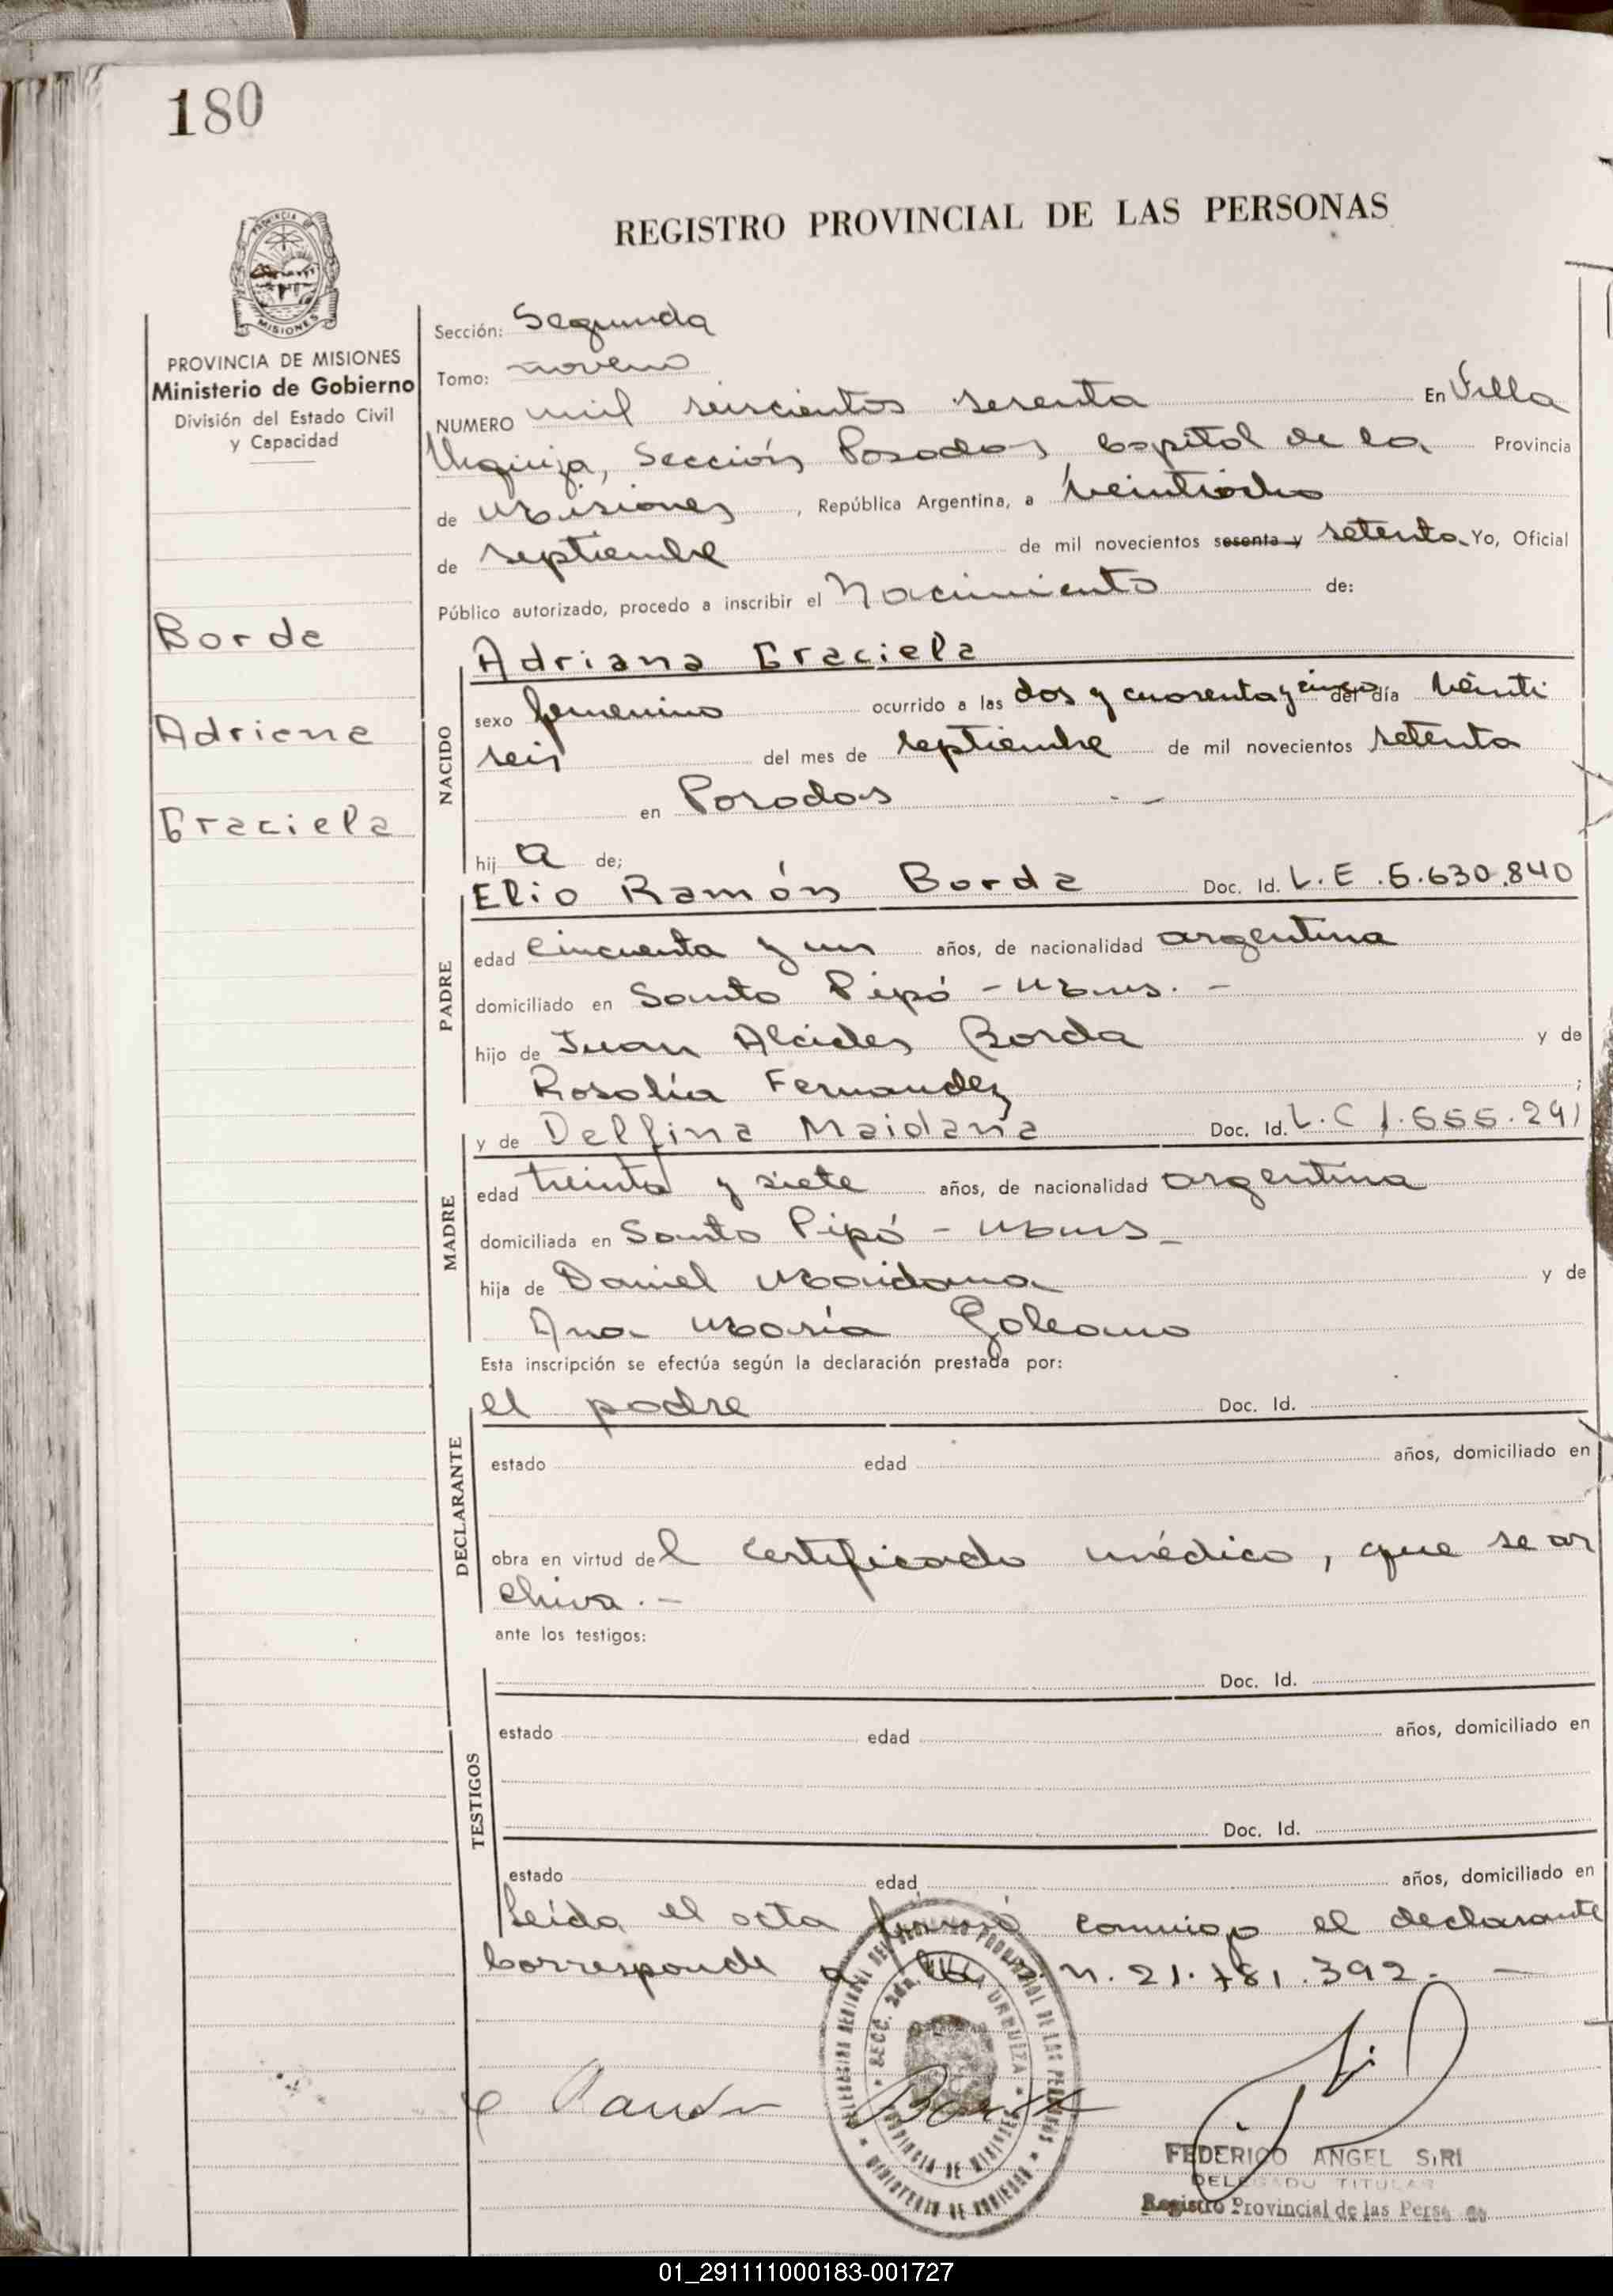 180
REGISTRO PROVINCIAL DE LAS PERSONAS
PROVINCIA
MISIONES
PROVINCIA DE MISIONES
Ministerio de Gobierno
División del Estado Civil
y Capacidad
Borda
Adriana
Graciela
Sección: Segunda
Tomo: noveno
NUMERO mil seiscientos sesenta En Villa
Urquiza, Sección Posadas, Capital de la Provincia
de Misiones, República Argentina, a veintiocho
de septiembre de mil novecientos sesenta y setenta Yo, Oficial
Público autorizado, procedo a inscribir el Nacimiento de:
NACIDO
Adriana Graciela
sexo femenino ocurrido a las dos y cuarenta y cinco del día veinti
seis del mes de septiembre de mil novecientos setenta
en Posadas . —
hij a de;
PADRE
Elio Ramón Borda Doc. Id. L.E. 5.630.840
edad cincuenta y un años, de nacionalidad argentina
domiciliado en Santo Pipó - Mnes. -
hijo de Juan Alcides Borda y de
Rosalía Fernandez ;
MADRE
y de Delfina Maidana Doc. Id. L.C 1.655.291
edad treinta y siete años, de nacionalidad argentina
domiciliada en Santo Pipó - Mnes -
hija de Daniel Maidana y de
Ana María Galeano
Esta inscripción se efectúa según la declaración prestada por:
DECLARANTE
el padre Doc. Id.
estado edad años, domiciliado en
obra en virtud del certificado médico, que se ar
chiva. -
ante los testigos:
TESTIGOS
Doc. Id.
estado edad años, domiciliado en
Doc. Id.
estado edad años, domiciliado en
Leída el acta firmó conmigo el declarante
Corresponde a N. 21.781.392. -
SECC. 2da. VILLA URQUIZA
PROVINCIA DE MISIONES
MINISTERIO DE GOBIERNO
FEDERICO ANGEL SIRI
DELEGADO TITULAR
Registro Provincial de las Personas
01_291111000183-001727